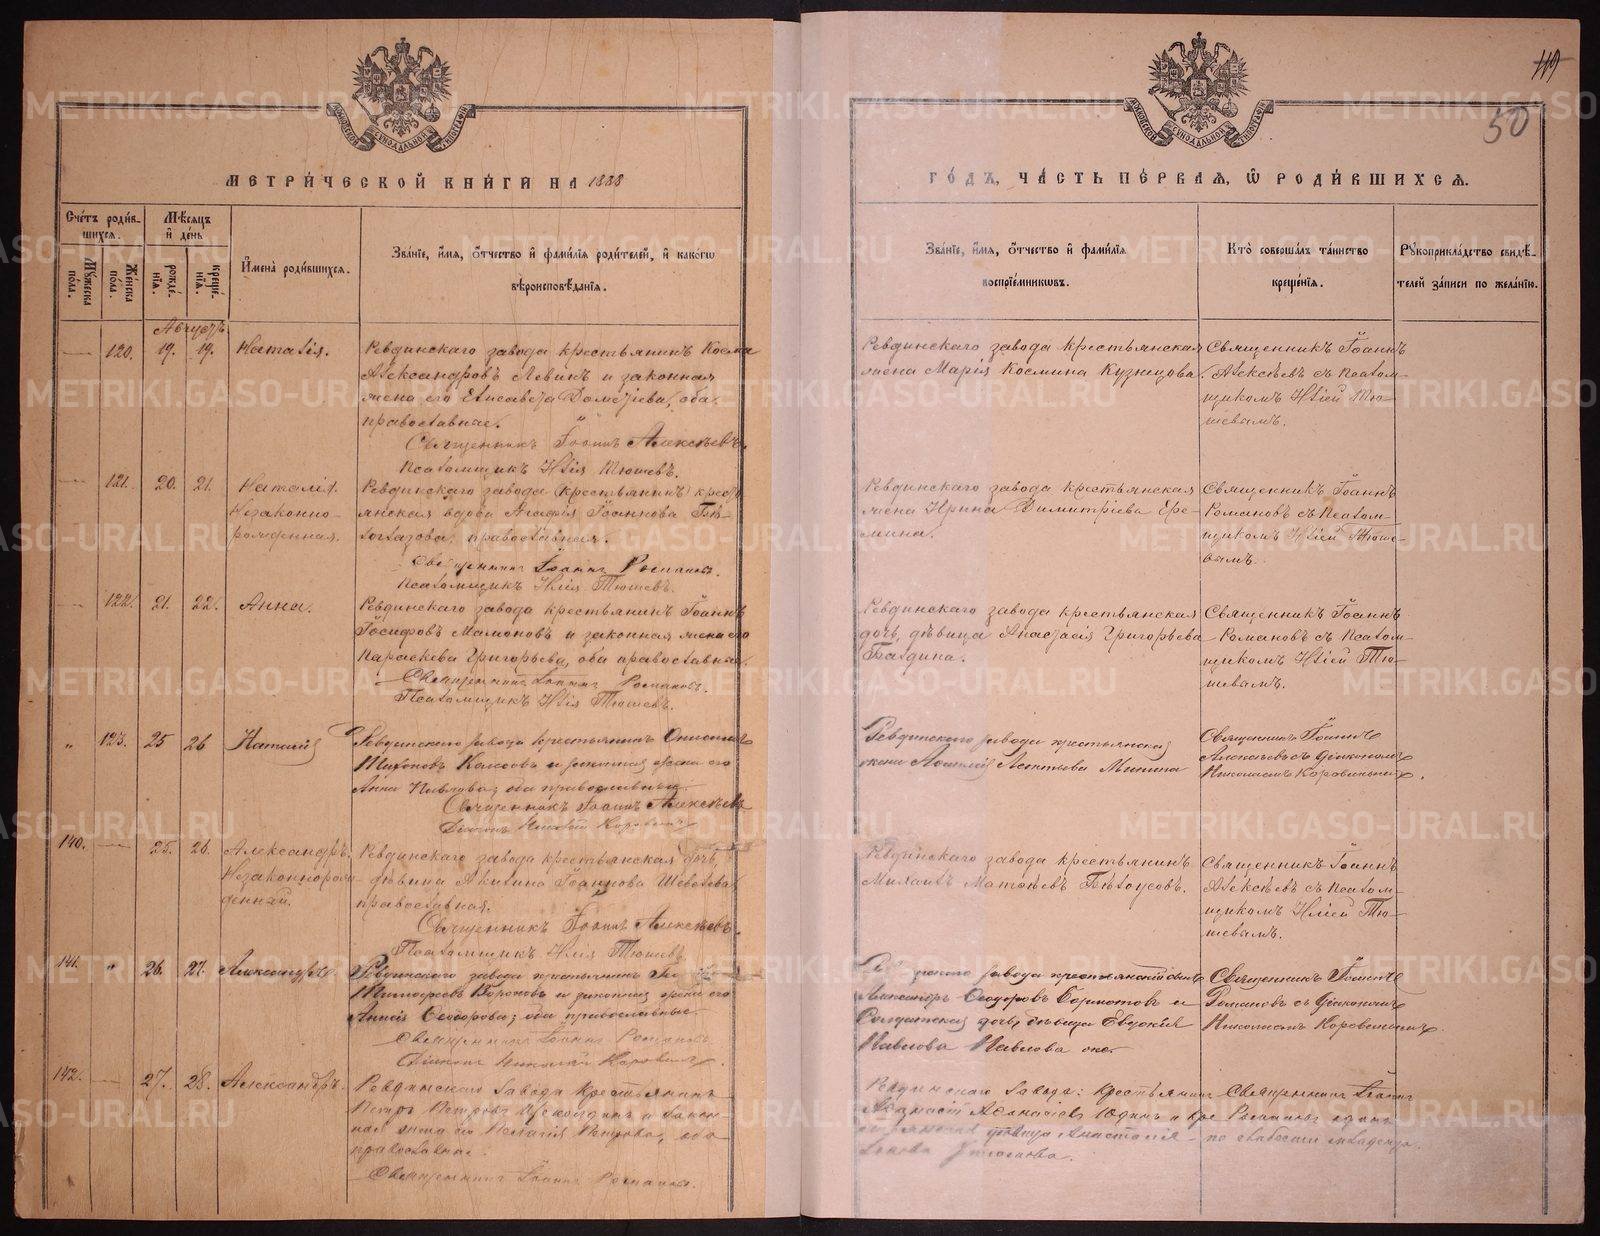 119
50
МЕТРИ́ЧЕСКОЙ КНИ́ГИ НА 1888
ГО́ДЪ, ЧА́СТЬ ПЕ́РВАЯ, Ѽ РОДИ́ВШИХСЯ.
Сче́тъ роди́вшихся.
Му́жеска по́ла.
Же́нска по́ла.
Мѣ́сяцъ и́ де́нь
рожде́нія.
креще́нія.
И҆мена̀ роди́вшихся.
Зва́ніе, и҆́мя, ѻ҆́тчество и҆ фами́лія роди́телей, и҆ како́гѡ
вѣроисповѣ́данія.
Зва́ніе, и҆́мя, ѻ҆́тчество и҆ фами́лія
воспрїе́мниковъ.
Кто̀ соверша́лъ та́инство
креще́нія.
Рукоприкла́дство свидѣ́-
телей за́писи по жела́нію.
Августъ
120. 19. 19. Наталія.
Ревдинскаго завода крестьянинъ Косма
Александровъ Левинъ и законная
жена его Елисавета Дометіева, оба
православные.
Священникъ Іоаннъ Алексѣевъ.
Псаломщикъ Илія Тюшевъ.
Ревдинскаго завода крестьянская
жена Марія Космина Кузнецова.
Священникъ Іоаннъ
Алексѣевъ съ псалом-
щикомъ Иліей Тю-
шевымъ.
121. 20. 21. Наталія.
Незаконно-
рожденная.
Ревдинскаго завода (крестьянинъ) кресть-
янская вдова Агафія Іоаннова Бѣ-
логлазова, православная.
Священникъ Іоаннъ Романовъ.
Псаломщикъ Илія Тюшевъ.
Ревдинскаго завода крестьянская
жена Ирина Димитріева Ере-
мина.
Священникъ Іоаннъ
Романовъ съ псалом-
щикомъ Иліей Тюше-
вымъ.
122. 21. 22. Анна.
Ревдинскаго завода крестьянинъ Іоаннъ
Іосифовъ Мамоновъ и законная жена его
Параскева Григорьева, оба православные.
Священникъ Іоаннъ Романовъ.
Псаломщикъ Илія Тюшевъ.
Ревдинскаго завода крестьянская
дочь, дѣвица Анастасія Григорьева
Балдина.
Священникъ Іоаннъ
Романовъ съ псалом-
щикомъ Иліей Тю-
шевымъ.
" 123. 25 26 Наталія
Ревдинскаго завода крестьянинъ
Тихоновъ и законная жена его
Анна Павлова; оба православные.
Священникъ Іоаннъ Алексѣевъ
Діаконъ Николай Коровинъ
Ревдинскаго завода крестьянская
жена Леонтьева Минина
Священникъ Іоаннъ
Алексѣевъ съ діакономъ
Николаемъ Коровинымъ.
140. 25. 26. Александръ.
Незаконнорож-
денный.
Ревдинскаго завода крестьянская дочь,
дѣвица Акилина Іоаннова Шевелева,
православная.
Священникъ Іоаннъ Алексѣевъ.
Псаломщикъ Илія Тюшевъ.
Ревдинскаго завода крестьянинъ
Михаилъ Матвѣевъ Бѣлоусовъ.
Священникъ Іоаннъ
Алексѣевъ съ псалом-
щикомъ Иліей Тю-
шевымъ.
141. " 26. 27. Александръ.
Ревдинскаго завода крестьянинъ
Тимофеевъ и законная жена его
Анна Ѳеодорова; оба православные.
Священникъ Іоаннъ Романовъ
Діаконъ Николай Коровинъ.
завода крестьянскій сынъ
Александръ Ѳеодоровъ Бормотовъ и
Солдатская дочь, дѣвица Евдокія
Павлова
Священникъ Іоаннъ
Романовъ съ діакономъ
Николаемъ Коровинымъ.
142. 27. 28. Александръ.
Ревдинскаго завода крестьянинъ
Петръ Петровъ и закон-
ная жена его Пелагія Петрова, оба
православные.
Священникъ Іоаннъ Романовъ.
Ревдинскаго завода: крестьянинъ
Аѳанасіевъ Юдинъ и кре
стьянская дѣвица Анастасія
Священникъ Іоаннъ
Романовъ одинъ
по слабости младенца.